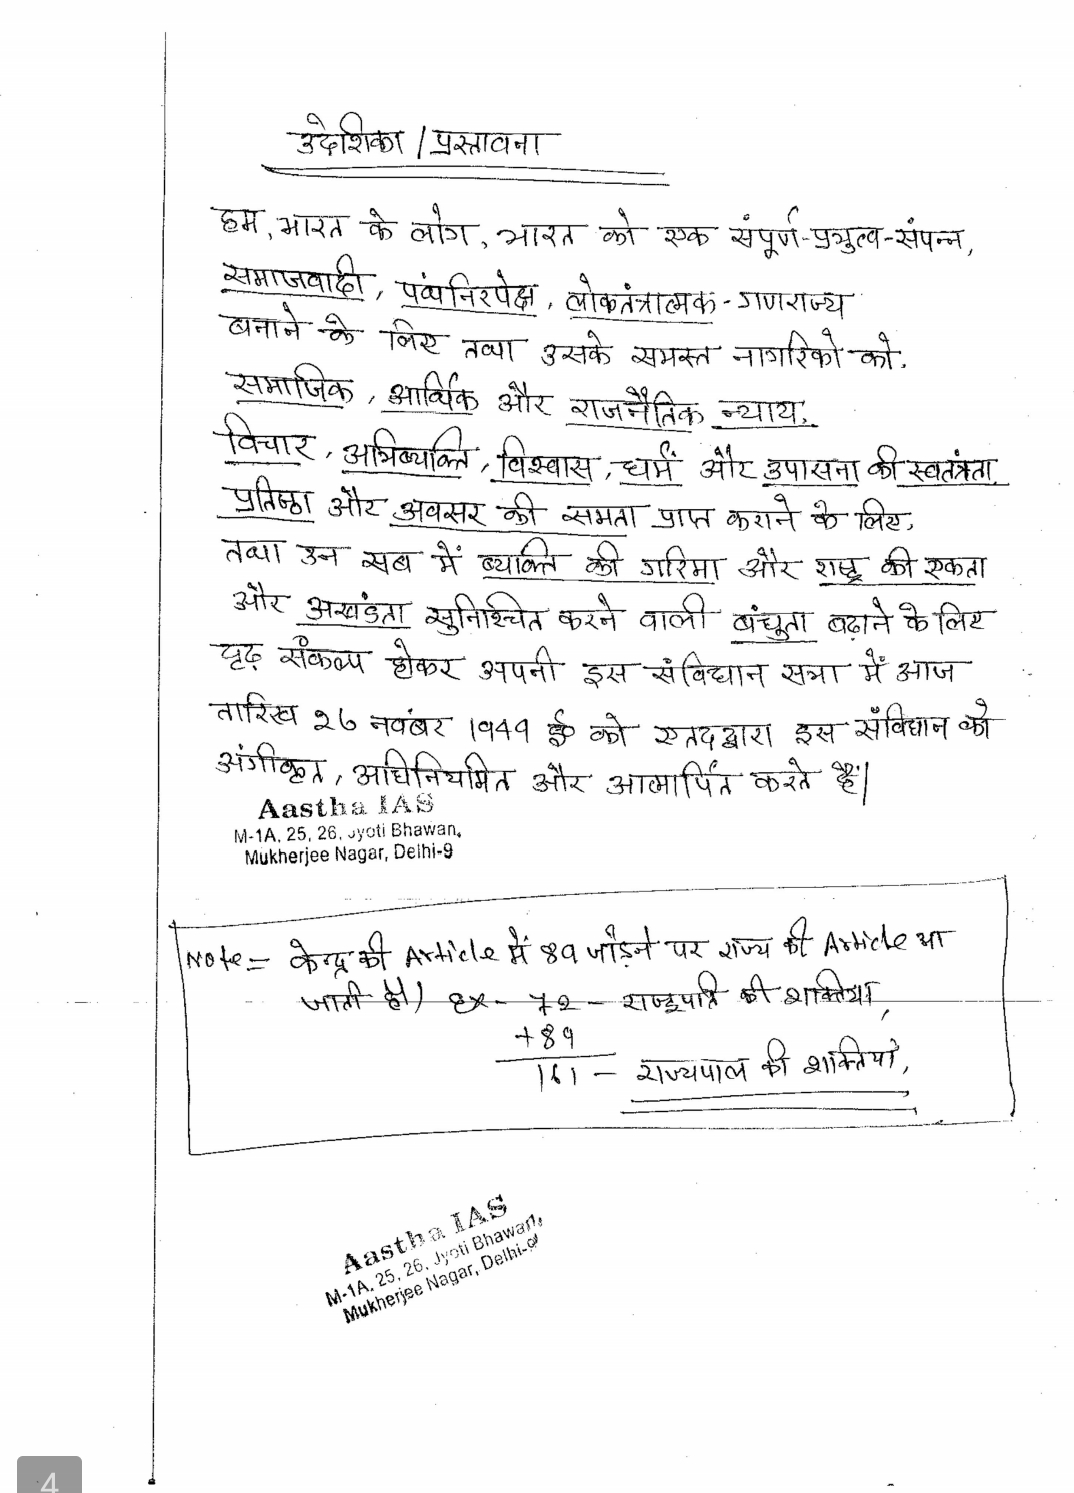 उदेशिका / प्रस्तावना
हम, भारत के लोग, भारत को एक संपूर्ण-प्रभुत्व-संपन्न,
समाजवादी, पंथनिरपेक्ष, लोकतंत्रात्मक - गणराज्य
बनाने के लिए तथा उसके समस्त नागरिको को,
समाजिक, आर्थिक और राजनैतिक न्याय,
विचार, अभिव्यक्ति, विश्वास, धर्म और उपासना की स्वतंत्रता,
प्रतिष्ठा और अवसर की समता प्राप्त कराने के लिए,
तथा उन सब में व्यक्ति की गरिमा और राष्ट्र की एकता
और अखंडता सुनिश्चित करने वाली बंधुता बढ़ाने के लिए
दृढ़ संकल्प होकर अपनी इस संविधान सभा में आज
तारिख 26 नवंबर 1949 ई को एतदद्वारा इस संविधान को
अंगीकृत, अधिनियमित और आत्मार्पित करते हैं।
Aastha IAS
M-1A, 25, 26, Jyoti Bhawan,
Mukherjee Nagar, Delhi-9
Note = केन्द्र की Article में 89 जोड़ने पर राज्य की Article आ
जाती है। ex - 72 - राष्ट्रपति की शक्तियां,
+89
161 - राज्यपाल की शक्तियां,
Aastha IAS
M-1A, 25, 26, Jyoti Bhawan,
Mukherjee Nagar, Delhi-9
4